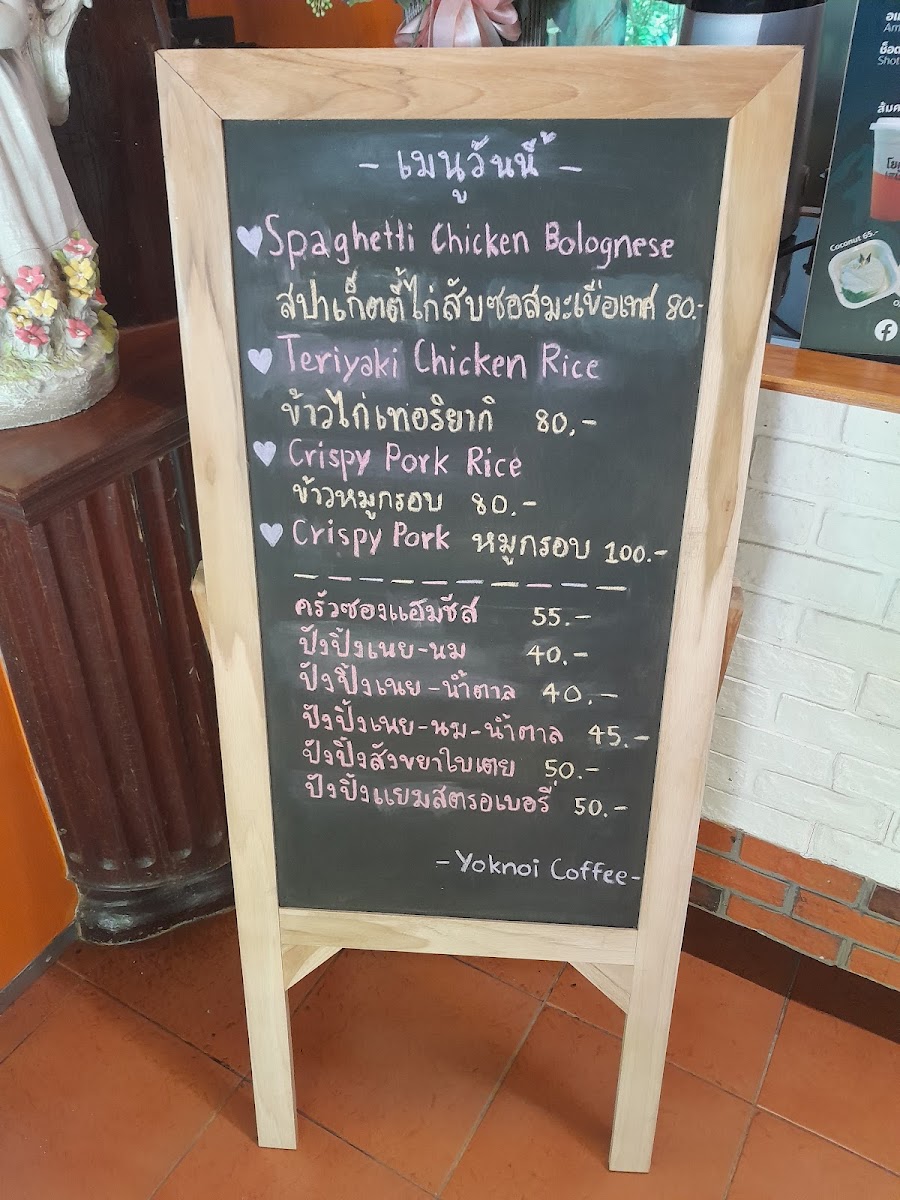 - เมนูวันนี้ -
Spaghetti Chicken Bolognese
สปาเก็ตตี้ไก่สับซอสมะเขือเทศ 80.-
Teriyaki Chicken Rice
ข้าวไก่เทอริยากิ 80.-
Crispy Pork Rice
ข้าวหมูกรอบ 80.-
Crispy Pork หมูกรอบ 100.-
ครัวซองแฮมชีส 55.-
ปังปิ้งเนย-นม 40.-
ปังปิ้งเนย-น้ำตาล 40.-
ปังปิ้งเนย-นม-น้ำตาล 45.-
ปังปิ้งสังขยาใบเตย 50.-
ปังปิ้งแยมสตรอเบอรี่ 50.-
- Yoknoi Coffee -
Coconut 65.-